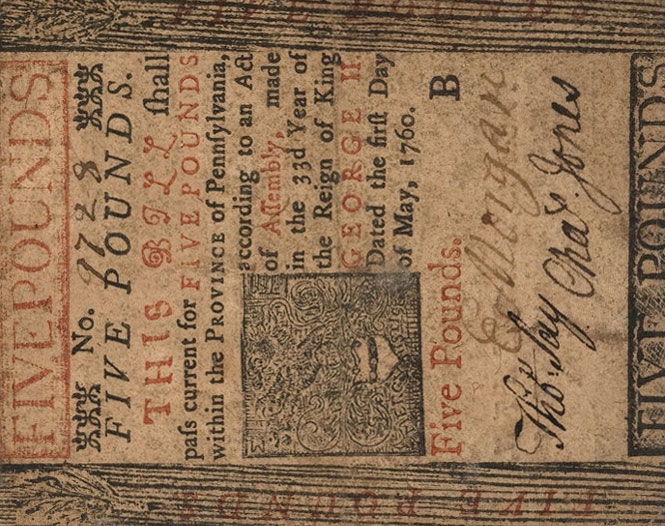 FIVE POUNDS
FIVE POUNDS.
No. 9728
FIVE POUNDS.
THIS BILL ſhall
paſs current for FIVE POUNDS
within the PROVINCE of Pennſylvania,
according to an Act
of Aſſembly, made
in the 33d Year of
the Reign of King
GEORGE II.
Dated the firſt Day
of May, 1760.
Five Pounds. B
E. Morgan
Thos. Say Chas. Jones
FIVE POUNDS
FIVE POUNDS